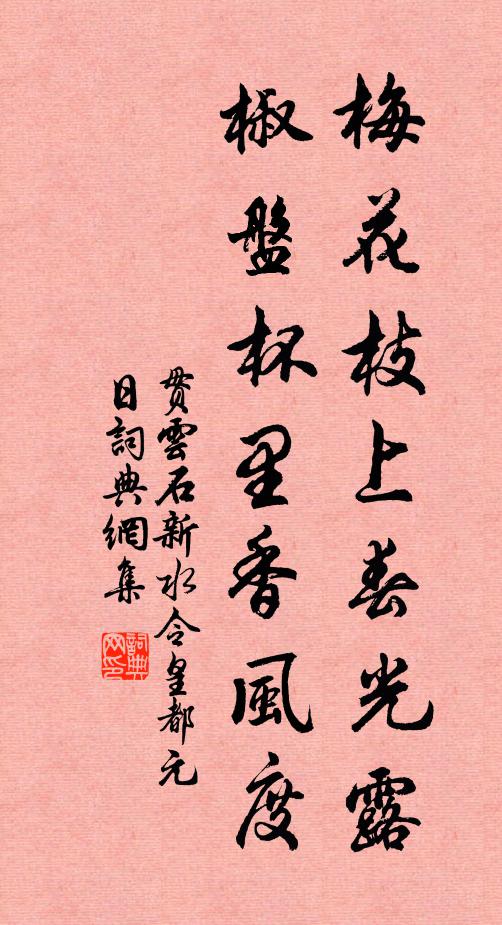 梅花枝上春光露
椒盤杯里香風度
貫雲石新水令皇都元
日詞典網集
詞典網印